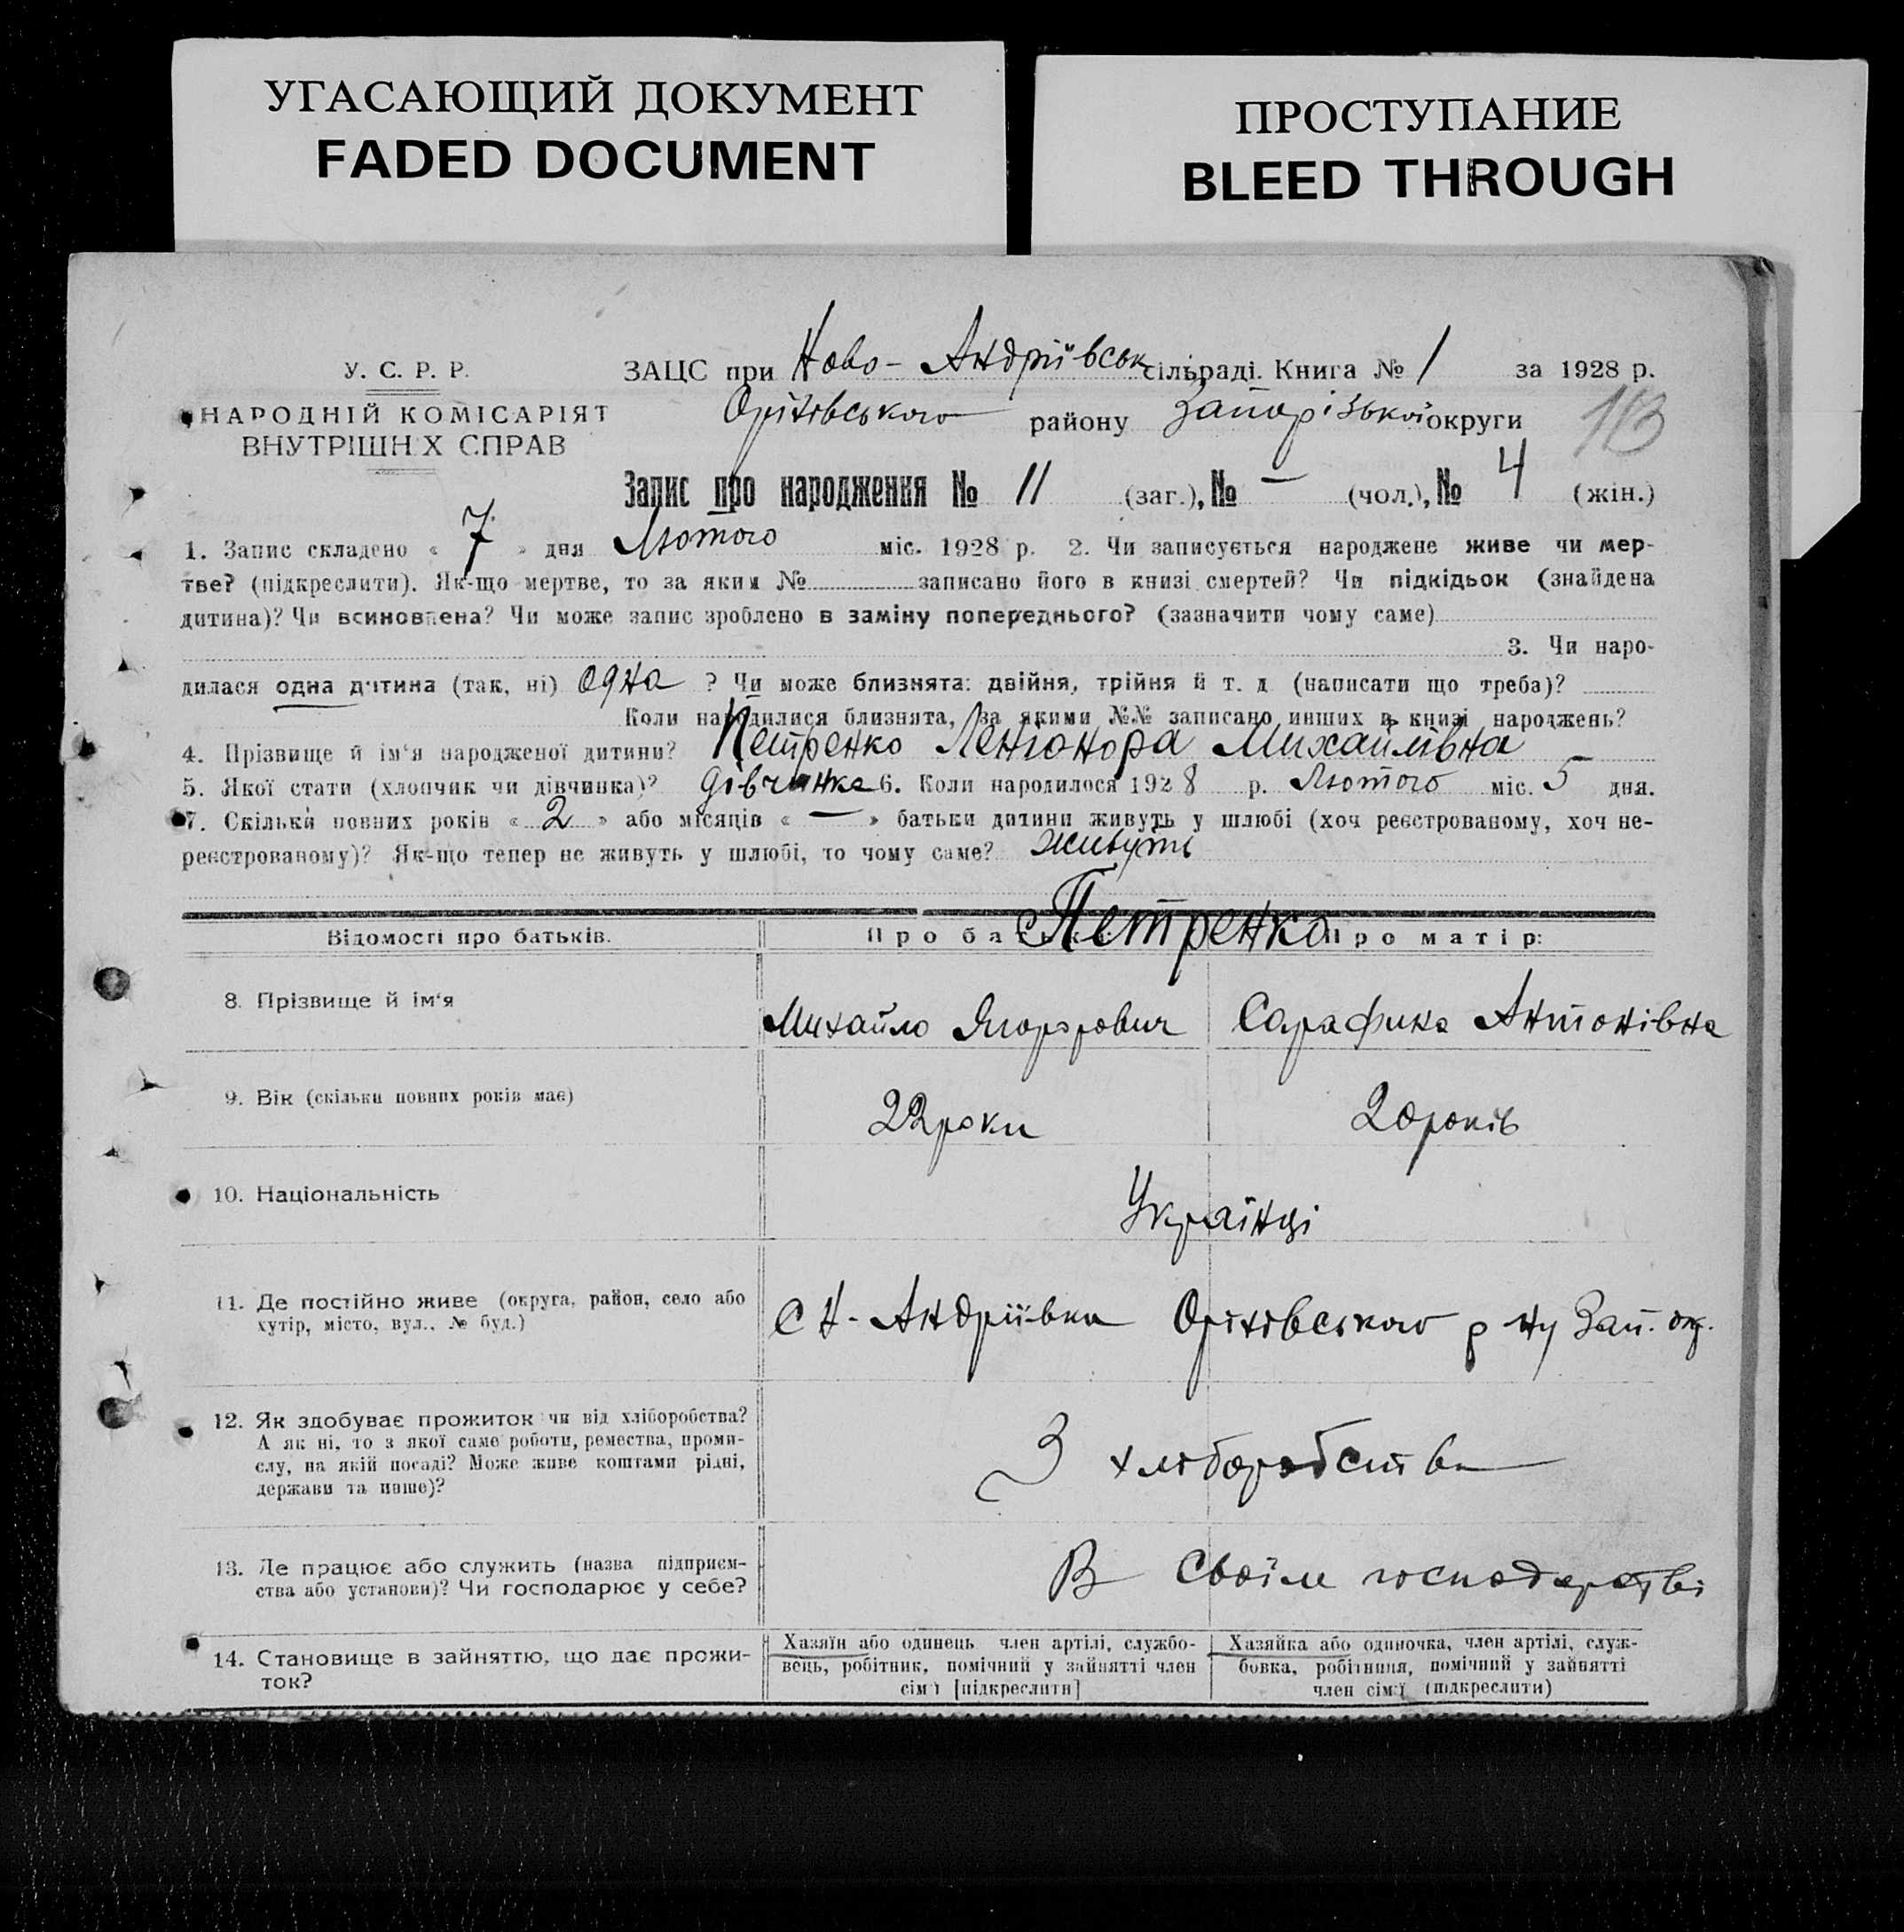 УГАСАЮЩИЙ ДОКУМЕНТ
FADED DOCUMENT
ПРОСТУПАНИЕ
BLEED THROUGH
У. С. Р. Р.
НАРОДНІЙ КОМІСАРІЯТ
ВНУТРІШНІХ СПРАВ
ЗАЦС при Ново-Андріївськ сільраді. Книга № 1 за 1928 р.
Оріхівського району Запорізької округи
113
Запис про народження № 11 (заг.), № — (чол.), № 4 (жін.)
1. Запис складено « 7 » дня Лютого міс. 1928 р. 2. Чи записується народжене живе чи мер-
тве? (підкреслити). Як-що мертве, то за яким № записано його в книзі смертей? Чи підкідьок (знайдена
дитина)? Чи всиновлена? Чи може запис зроблено в заміну попереднього? (зазначити чому саме)
3. Чи наро-
дилася одна дитина (так, ні) одна ? Чи може близнята: двійня, трійня й т. д. (написати що треба)?
Коли народилися близнята, за якими №№ записано инших в книзі народжень?
4. Прізвище й ім'я народженої дитини? Петренко Ленійонора Михайлівна
5. Якої стати (хлопчик чи дівчинка)? дівчинка 6. Коли народилося 1928 р. Лютого міс. 5 дня.
7. Скільки повних років « 2 » або місяців « — » батьки дитини живуть у шлюбі (хоч реєстрованому, хоч не-
реєстрованому)? Як-що тепер не живуть у шлюбі, то чому саме? живуть
Відомості про батьків.
Про батька:
Про матір:
Петренко
8. Прізвище й ім'я
Михайло Ягорович
Сарафина Антонівна
9. Вік (скільки повних років має)
22 роки
20 років
10. Національність
Українці
11. Де постійно живе (округа, район, село або
хутір, місто, вул., № буд.)
с Н-Андріївка Оріхівського р ну Зап. ок.
12. Як здобуває прожиток чи від хліборобства?
А як ні, то з якої саме роботи, ремества, проми-
слу, на якій посаді? Може живе коштами рідні,
держави та инше)?
З хліборобства
13. Де працює або служить (назва підприєм-
ства або установи)? Чи господарює у себе?
В своїм господарстві
14. Становище в зайняттю, що дає прожи-
ток?
Хазяїн або одинець член артілі, службо-
вець, робітник, помічний у зайнятті член
сім'ї [підкреслити]
Хазяйка або одиночка, член артілі, служ-
бовка, робітниця, помічний у зайнятті
член сім'ї (підкреслити)